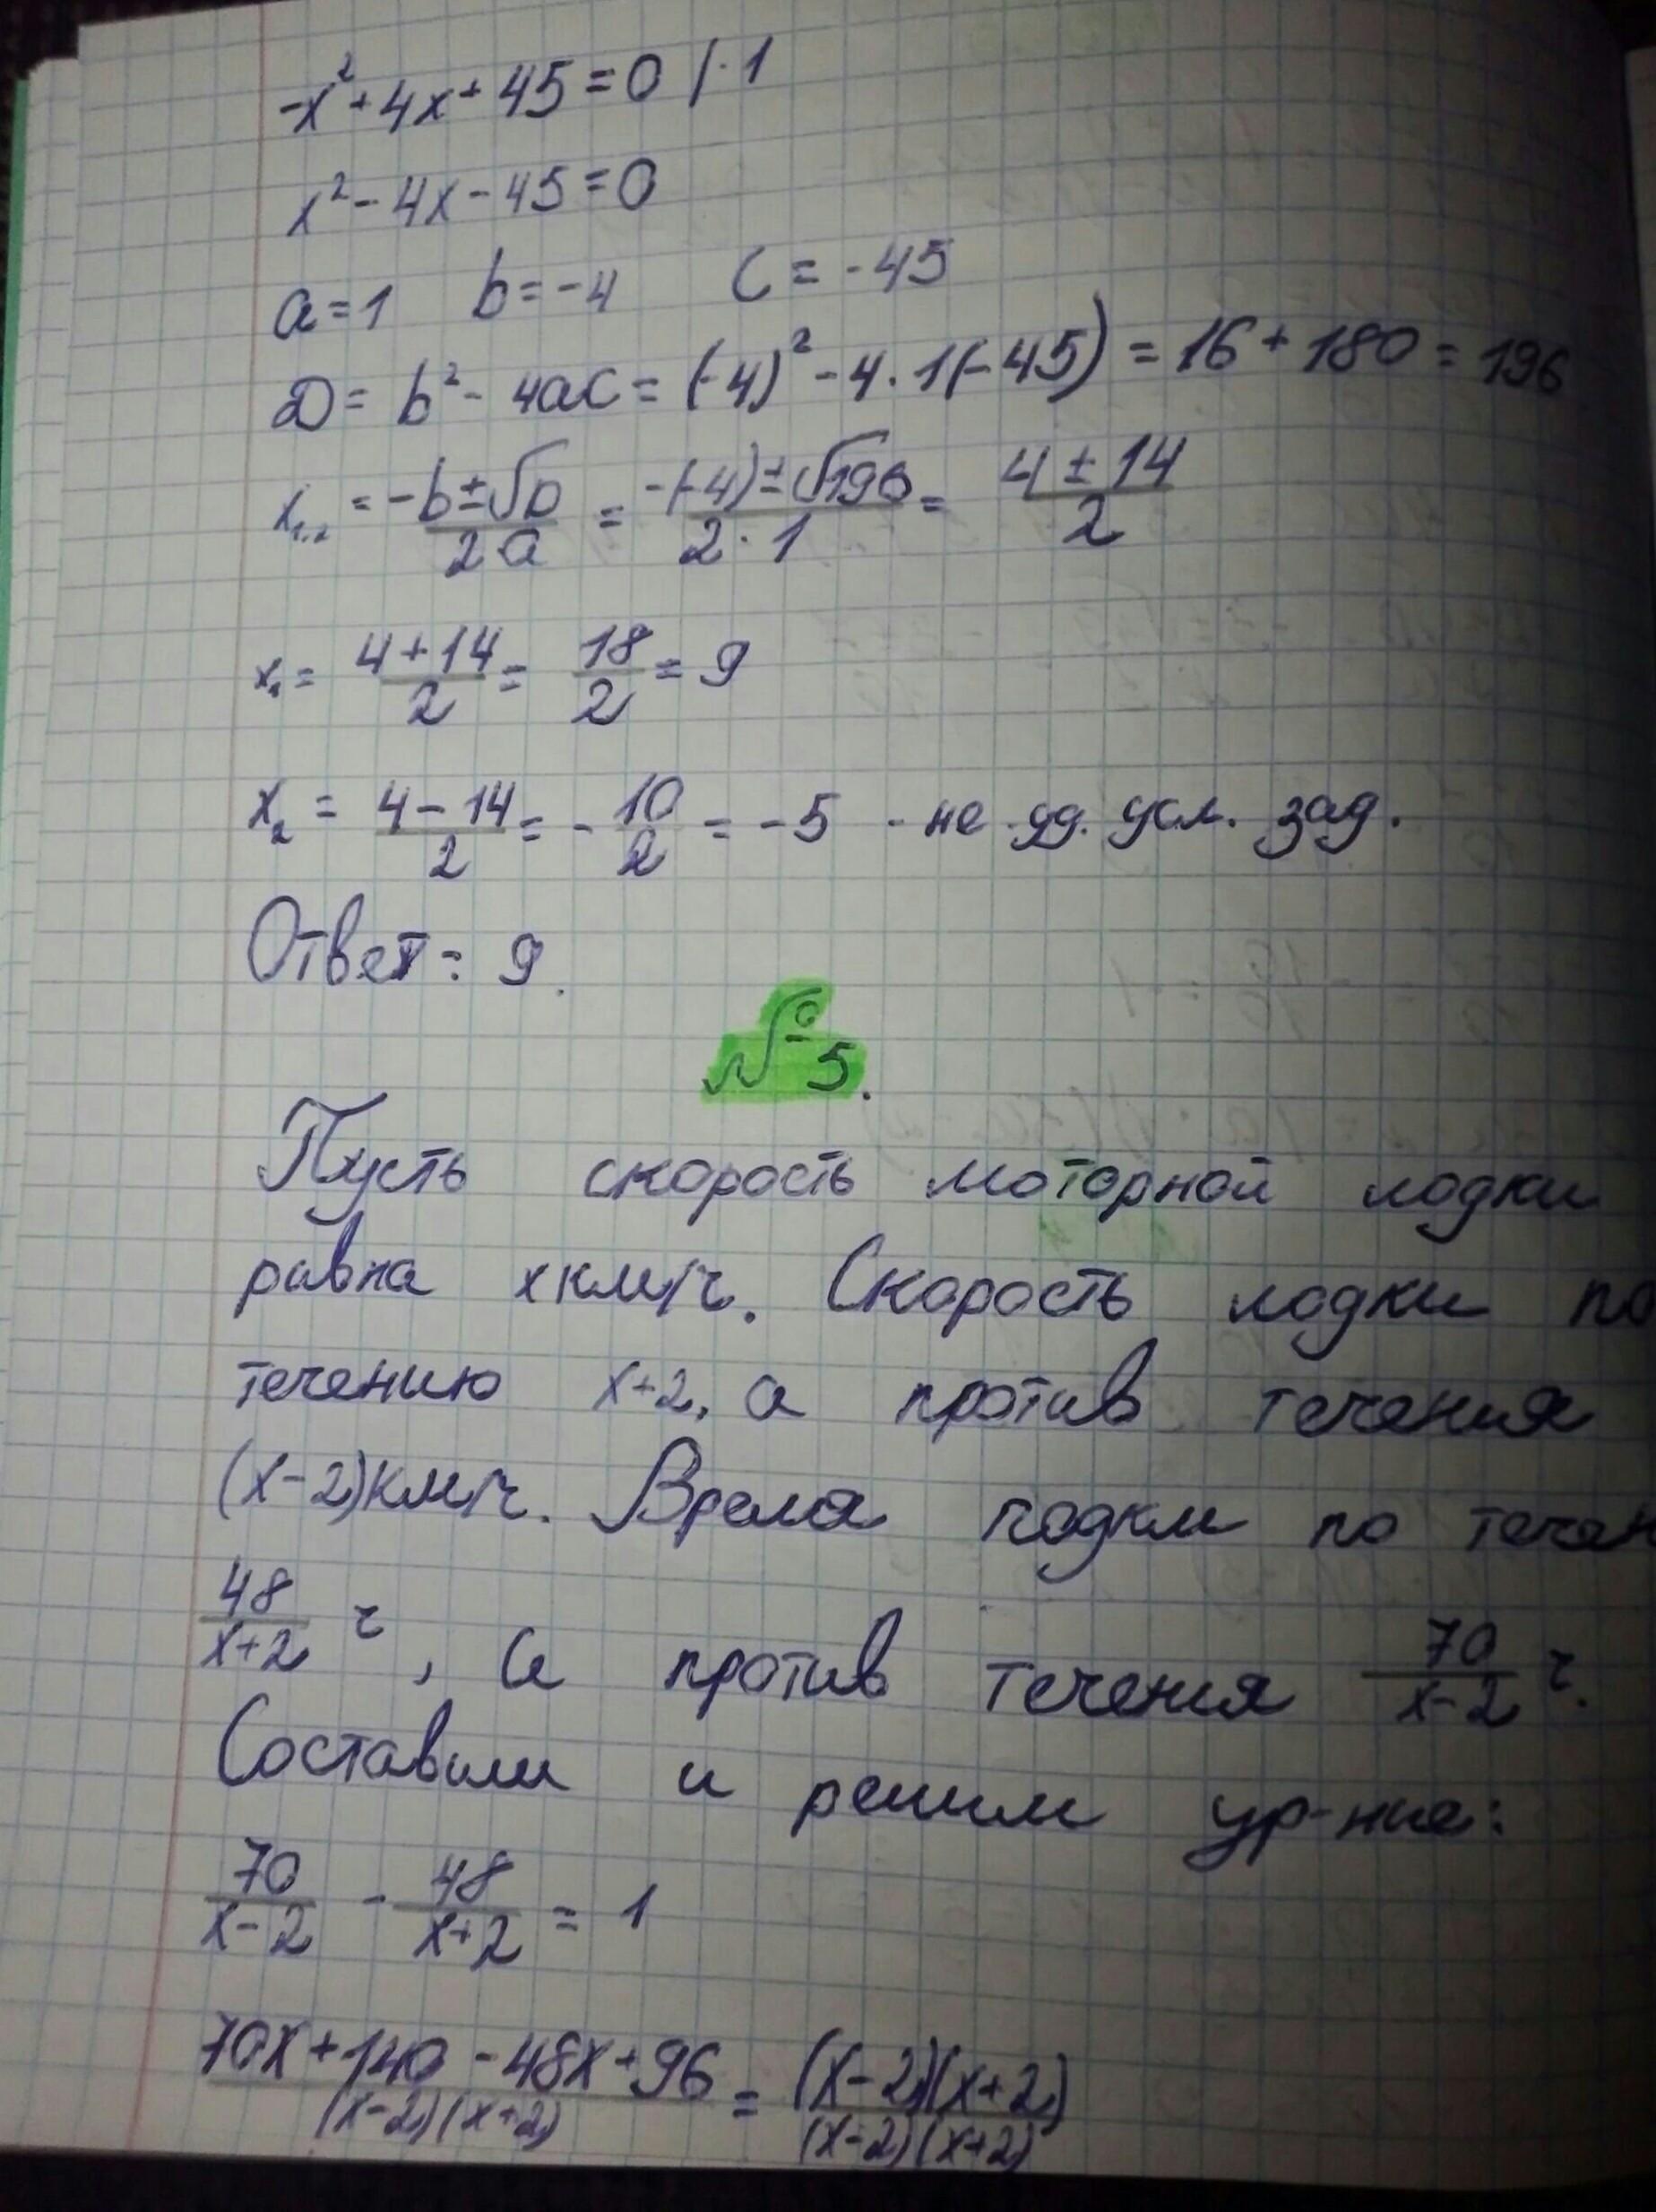 -x² + 4x + 45 = 0 | · 1
x² - 4x - 45 = 0
a = 1 b = -4 c = -45
D = b² - 4ac = (-4)² - 4 · 1(-45) = 16 + 180 = 196
x₁,₂ = (-b ± √D)/(2a) = (-(-4) ± √196)/(2 · 1) = (4 ± 14)/2
x₁ = (4 + 14)/2 = 18/2 = 9
x₂ = (4 - 14)/2 = -10/2 = -5 - не уд. усл. зад.
Ответ: 9.
№ 5.
Пусть скорость моторной лодки
равна x км/ч. Скорость лодки по
течению x+2, а против течения
(x-2) км/ч. Время лодки по течен
48/(x+2) ч, а против течения 70/(x-2) ч.
Составим и решим ур-ние:
70/(x-2) - 48/(x+2) = 1
(70x + 140 - 48x + 96)/((x-2)(x+2)) = ((x-2)(x+2))/((x-2)(x+2))